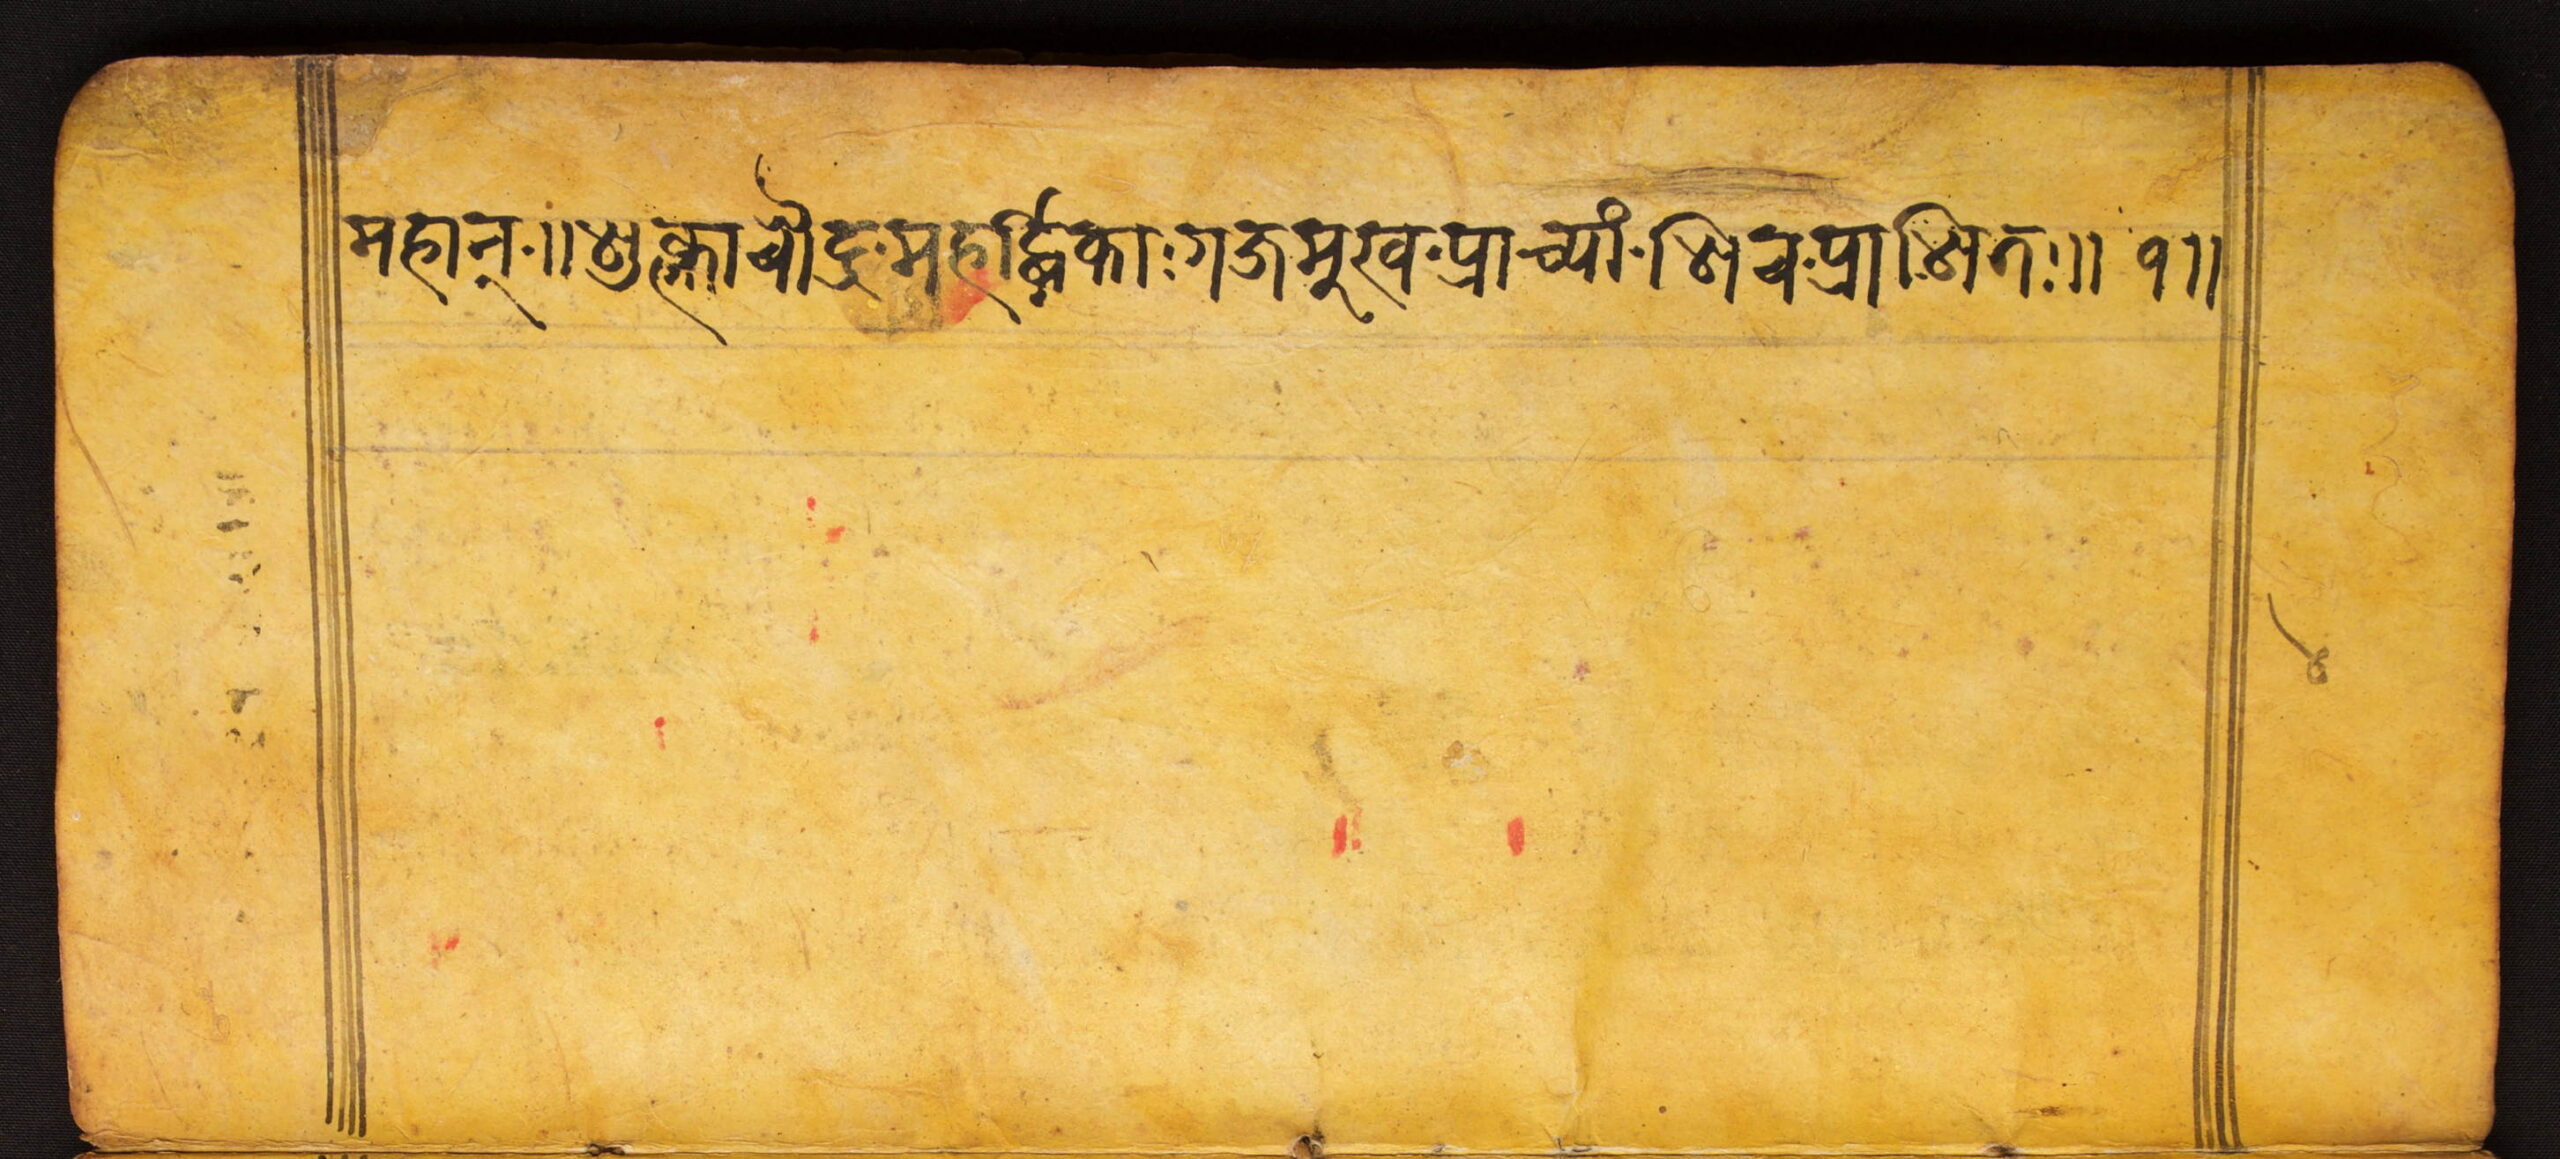 महान्·॥शुक्लाचौद्र·महर्द्धिकाः गजमूख·प्राच्यां·शिव·प्राशितः॥ १॥